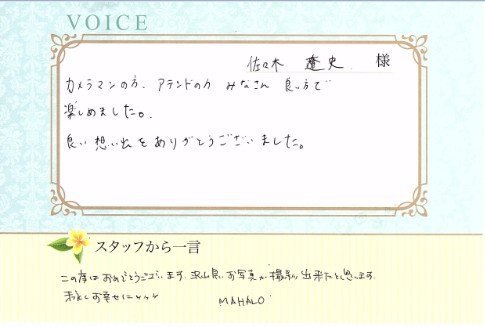 VOICE
佐々木 遼史 様
カメラマンの方、アテンドの方 みなさん 良い方で
楽しめました。
良い想い出をありがとうございました。
スタッフから一言
この度はおめでとうございます。沢山良いお写真が撮影出来たと思います。
末永くお幸せに
MAHALO